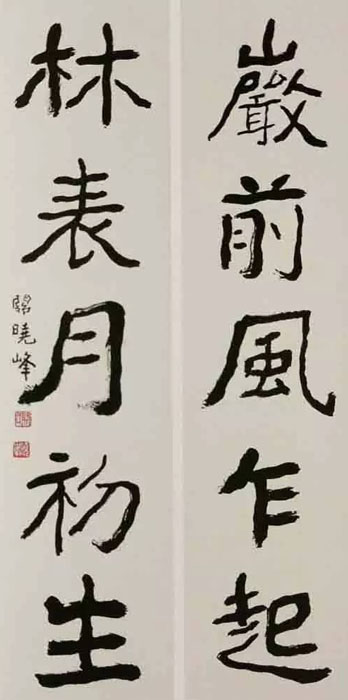 巖前風乍起
林表月初生
關曉峰